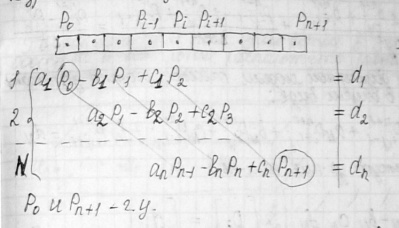 P₀ Pᵢ₋₁ Pᵢ Pᵢ₊₁ Pₙ₊₁
1 a₁P₀ - b₁P₁ + c₁P₂ = d₁
2 a₂P₁ - b₂P₂ + c₂P₃ = d₂
N aₙPₙ₋₁ - bₙPₙ + cₙPₙ₊₁ = dₙ
P₀ и Pₙ₊₁ - г.у.